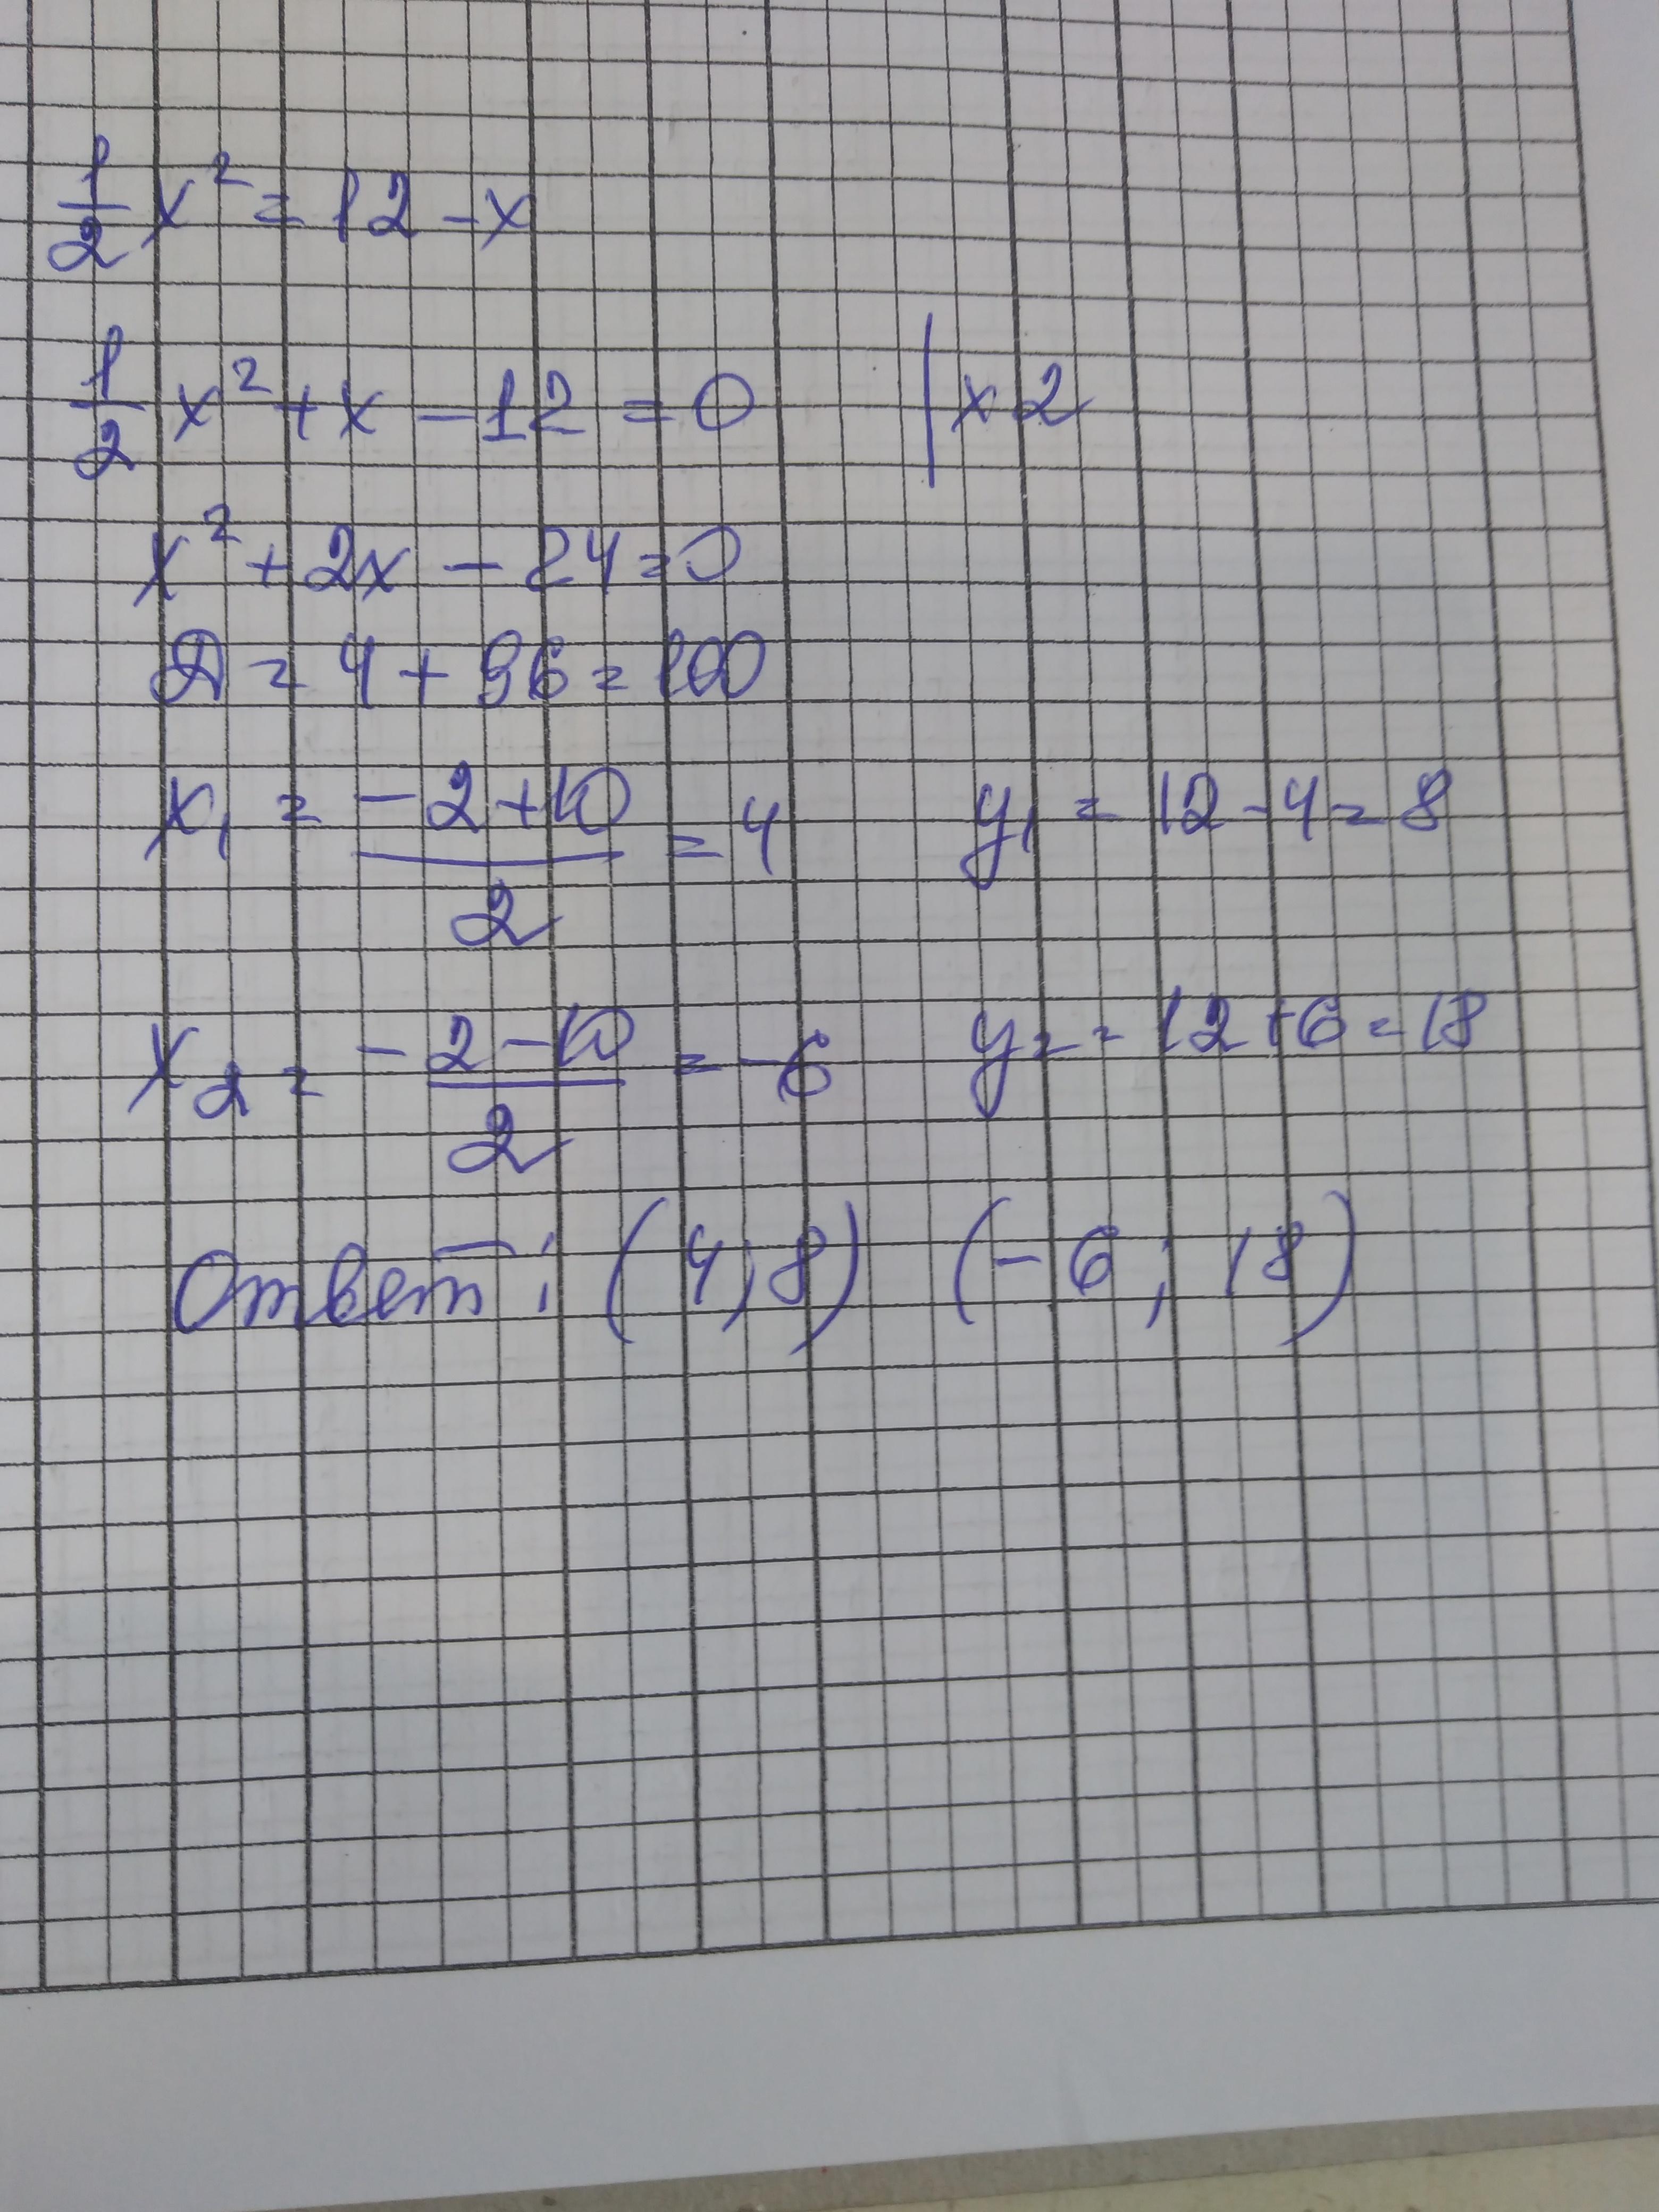 1/2 x² = 12 - x
1/2 x² + x - 12 = 0 | x 2
x² + 2x - 24 = 0
D = 4 + 96 = 100
x₁ = (-2 + 10)/2 = 4 y₁ = 12 - 4 = 8
x₂ = (-2 - 10)/2 = -6 y₂ = 12 + 6 = 18
Ответ: (4; 8) (-6; 18)